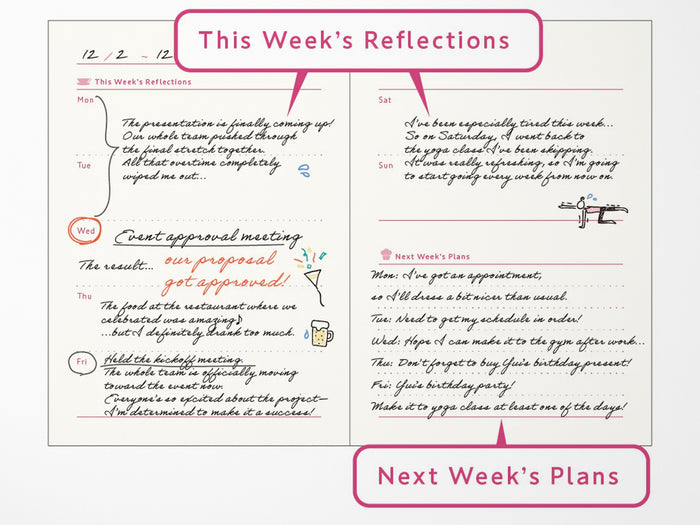 This Week's Reflections
12/2 ~ 12
This Week's Reflections
Mon
The presentation is finally coming up!
Our whole team pushed through
the final stretch together.
Tue
All that overtime completely
wiped me out...
Wed
Event approval meeting
The result... our proposal
got approved!
Thu
The food at the restaurant where we
celebrated was amazing♪
...but I definitely drank too much.
Fri
Held the kickoff meeting.
The whole team is officially moving
toward the event now.
Everyone's so excited about the project—
I'm determined to make it a success!
Sat
I've been especially tired this week...
So on Saturday, I went back to
the yoga class I've been skipping.
Sun
It was really refreshing, so I'm going
to start going every week from now on.
Next Week's Plans
Mon: I've got an appointment,
so I'll dress a bit nicer than usual.
Tue: Need to get my schedule in order!
Wed: Hope I can make it to the gym after work...
Thu: Don't forget to buy Yui's birthday present!
Fri: Yui's birthday party!
Make it to yoga class at least one of the days!
Next Week's Plans